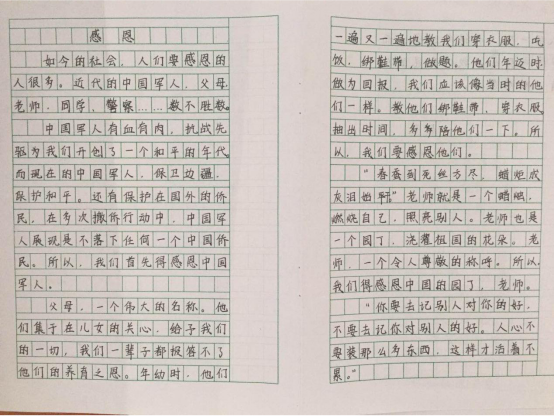 感恩
如今的社会，人们要感恩的
人很多。近代的中国军人，父母，
老师，同学，警察……数不胜数。
中国军人有血有肉，抗战先
驱为我们开创了一个和平的年代。
而现在的中国军人，保卫边疆，
保护和平。还有保护在国外的侨
民，在多次撤侨行动中，中国军
人展现是不落下任何一个中国侨
民。所以，我们首先得感恩中国
军人。
父母，一个伟大的名称。他
们集于在儿女的关心，给予我们
的一切，我们一辈子都报答不了
他们的养育之恩。年幼时，他们
一遍又一遍地教我们穿衣服，吃
饭，绑鞋带，做题。他们年迈时，
做为回报，我们应该像当时的他
们一样。教他们绑鞋带，穿衣服。
抽出时间，多多陪他们一下。所
以，我们要感恩他们。
“春蚕到死丝方尽，蜡炬成
灰泪始干”老师就是一个蜡烛，
燃烧自己，照亮别人。老师也是
一个园丁，浇灌祖国的花朵。老
师，一个令人尊敬的称呼。所以，
我们得感恩中国的园丁，老师。
“你要去记别人对你的好，
不要去记你对别人的好。人心不
要装那么多东西，这样才活着不
累。”